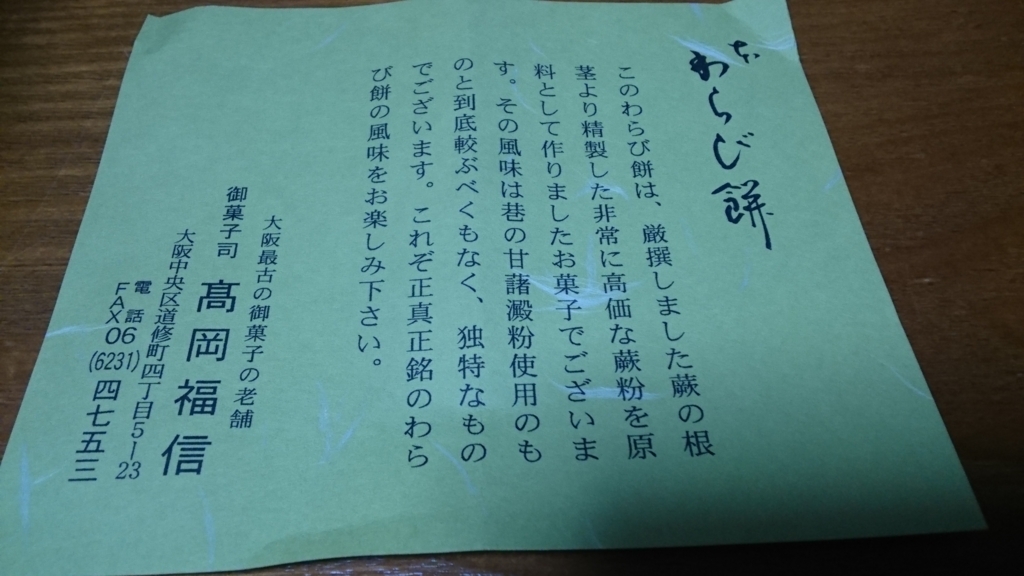 わらび餅
このわらび餅は、厳撰しました蕨の根
茎より精製した非常に高価な蕨粉を原
料として作りましたお菓子でございま
す。その風味は巷の甘藷澱粉使用のも
のと到底較ぶべくもなく、独特なもの
でございます。これぞ正真正銘のわら
び餅の風味をお楽しみ下さい。
大阪最古の御菓子の老舗
御菓子司 髙岡福信
大阪中央区道修町四丁目5-23
電話
FAX 06(6231)四七五三